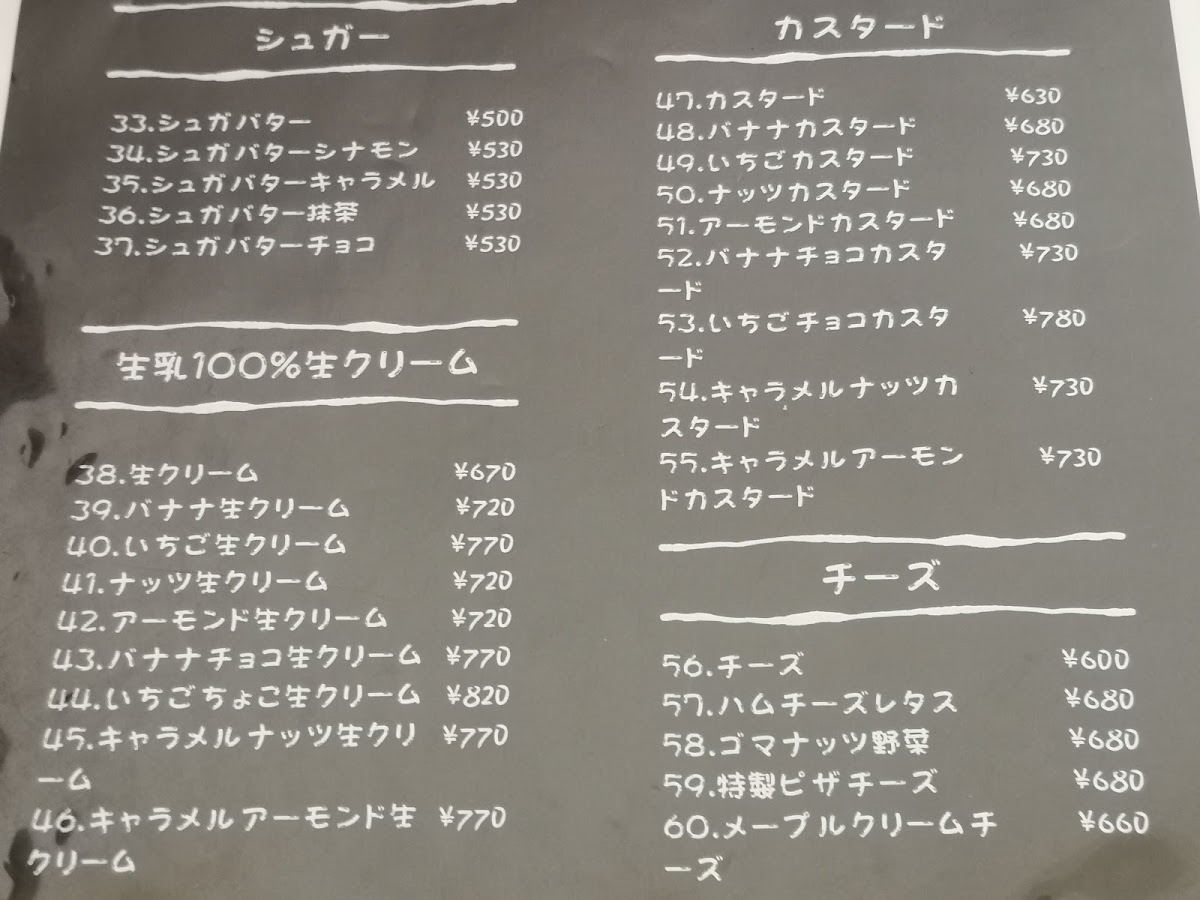 シュガー
33.シュガバター ¥500
34.シュガバターシナモン ¥530
35.シュガバターキャラメル ¥530
36.シュガバター抹茶 ¥530
37.シュガバターチョコ ¥530
生乳100%生クリーム
38.生クリーム ¥670
39.バナナ生クリーム ¥720
40.いちご生クリーム ¥770
41.ナッツ生クリーム ¥720
42.アーモンド生クリーム ¥720
43.バナナチョコ生クリーム ¥770
44.いちごちょこ生クリーム ¥820
45.キャラメルナッツ生クリ ¥770
ーム
46.キャラメルアーモンド生 ¥770
クリーム
カスタード
47.カスタード ¥630
48.バナナカスタード ¥680
49.いちごカスタード ¥730
50.ナッツカスタード ¥680
51.アーモンドカスタード ¥680
52.バナナチョコカスタ ¥730
ード
53.いちごチョコカスタ ¥780
ード
54.キャラメルナッツカ ¥730
スタード
55.キャラメルアーモン ¥730
ドカスタード
チーズ
56.チーズ ¥600
57.ハムチーズレタス ¥680
58.ゴマナッツ野菜 ¥680
59.特製ピザチーズ ¥680
60.メープルクリームチ ¥660
ーズ